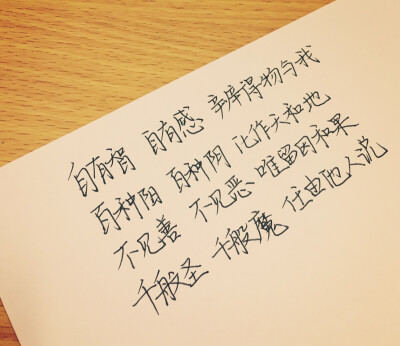 自有智 自有感 辨得物与我
百种阳 百种阴 化作天和地
不见善 不见恶 唯留因和果
千般圣 千般魔 任由他人说